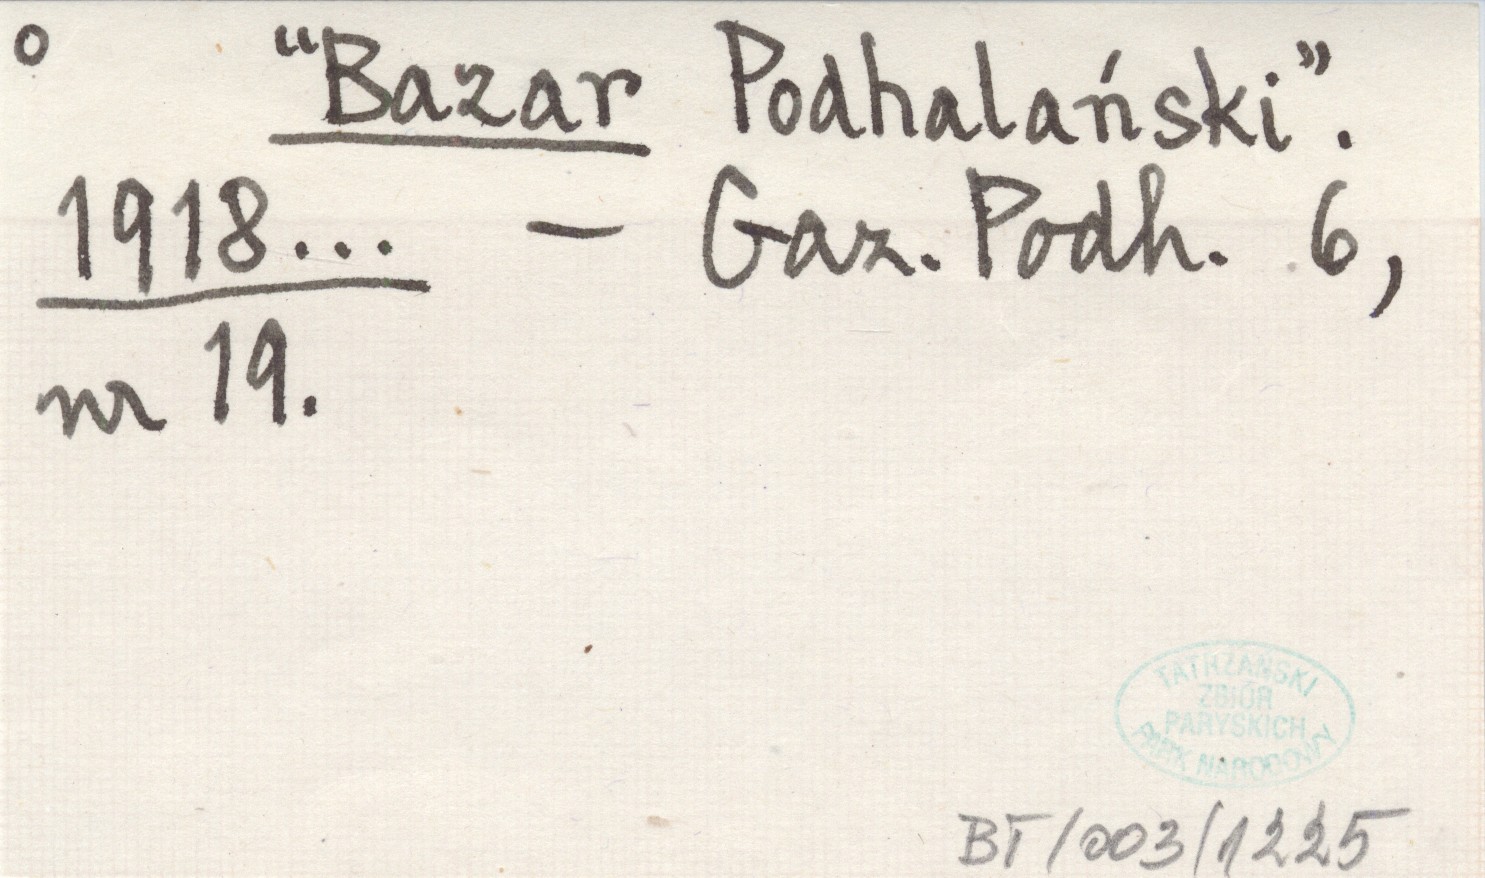 ° "Bazar Podhalański".
1918... – Gaz. Podh. 6,
nr 19.
TATRZAŃSKI
ZBIÓR
PARYSKICH
PARK NARODOWY
BT/003/1225